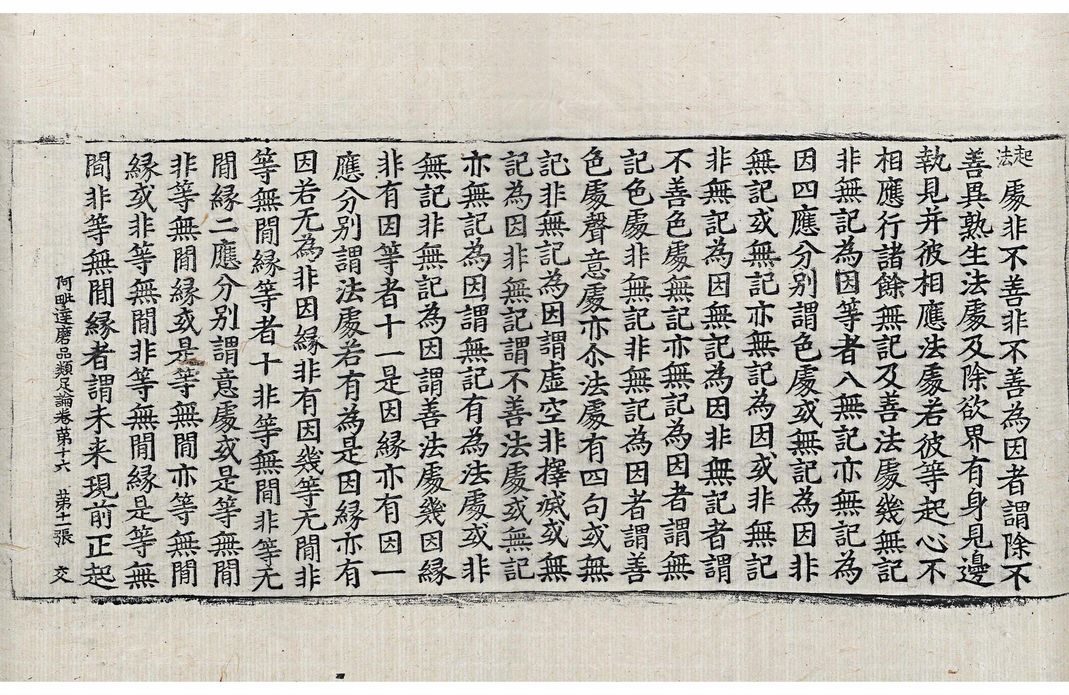 起法處非不善非不善為因者謂除不
善異熟生法處及除欲界有身見邊
執見并彼相應法處若彼等起心不
相應行諸餘無記及善法處幾無記
非無記為因等者八無記亦無記為
因四應分別謂色處或無記為因非
無記或無記亦無記為因或非無記
非無記為因無記為因非無記者謂
不善色處無記亦無記為因者謂無
記色處非無記非無記為因者謂善
色處聲意處亦尒法處有四句或無
記非無記為因謂虛空非擇滅或無
記為因非無記謂不善法處或無記
亦無記為因謂無記有為法處或非
無記非無記為因謂善法處幾因緣
非有因等者十一是因緣亦有因一
應分別謂法處若有為是因緣亦有
因若无為非因緣非有因幾等无間非
等無間緣等者十非等無間非等无
間緣二應分別謂意處或是等無間
非等無間緣或是等無間亦等無間
緣或非等無間非等無間緣是等無
間非等無間緣者謂未来現前正起
阿毗達磨品類足論卷苐十六 苐十一張 交